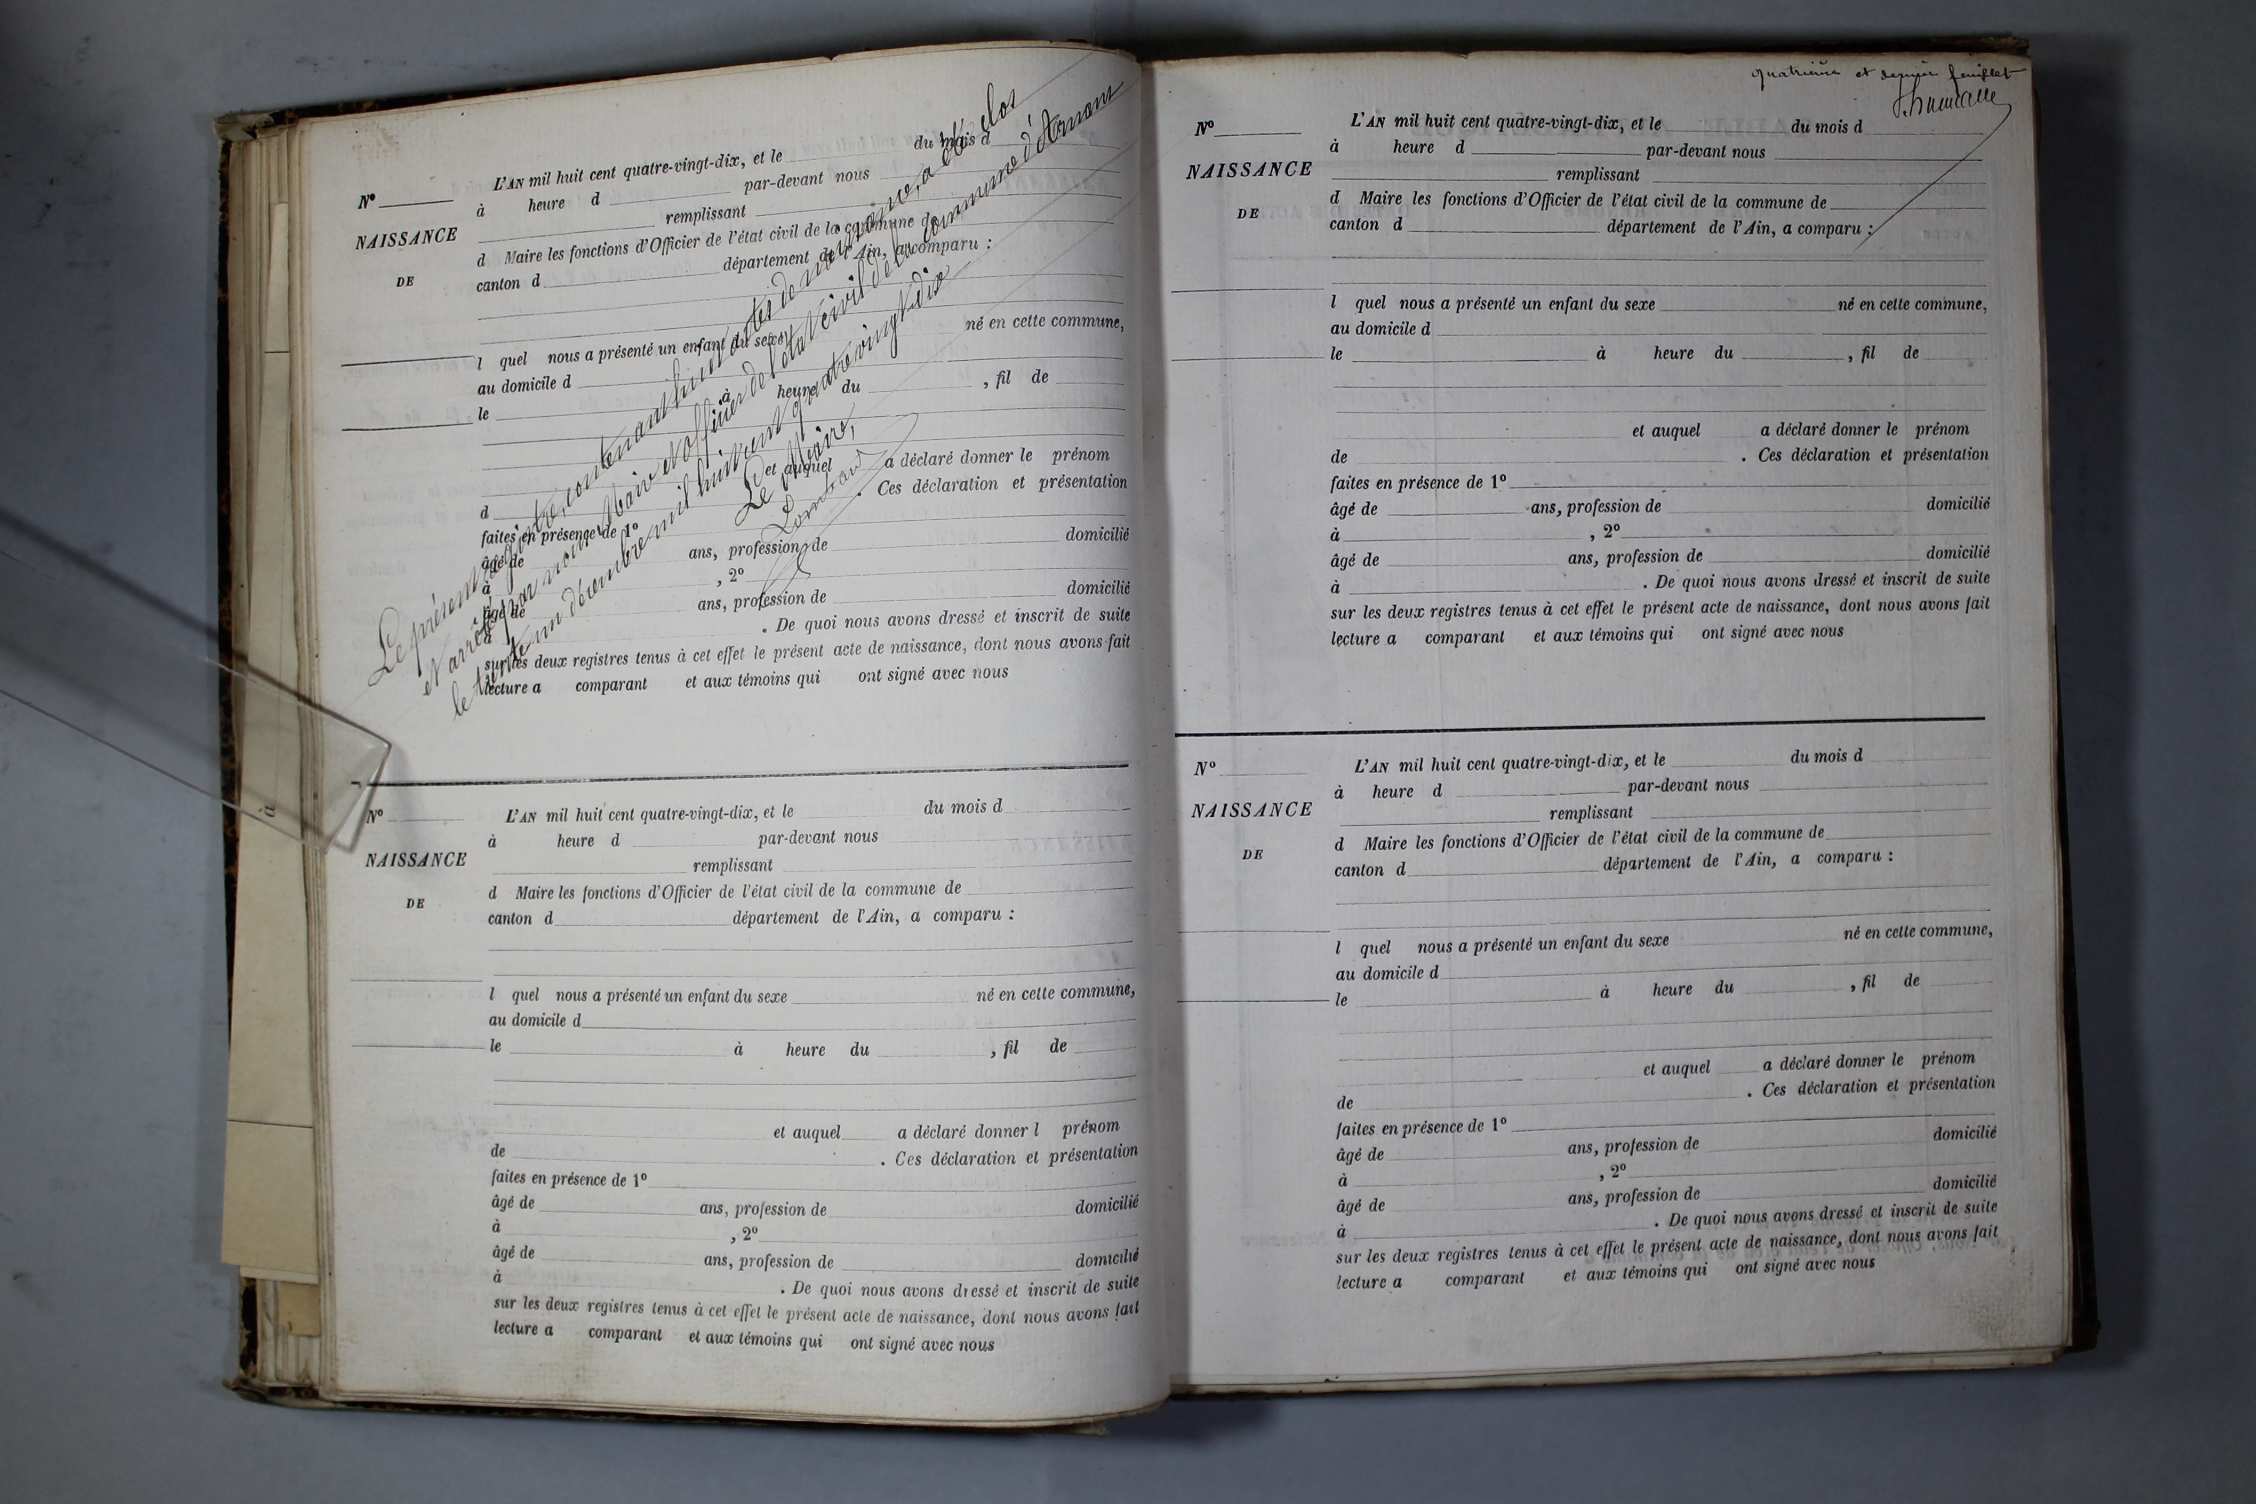 Le présent registre, contenant huit actes de naissance, a été clos
et arrêté par nous Maire et officier de l'état civil de la commune d'Arnans
le trente un décembre mil huit cent quatre vingt dix
Le Maire,
Nº
NAISSANCE
DE
L'AN mil huit cent quatre-vingt-dix, et le du mois d
à heure d par-devant nous
remplissant
d Maire les fonctions d'Officier de l'état civil de la commune de
canton d département de l'Ain, a comparu :
l quel nous a présenté un enfant du sexe né en cette commune,
au domicile d
le à heure du , fil de
et auquel a déclaré donner le prénom
d . Ces déclaration et présentation
faites en présence de 1º
âgé de ans, profession de domicilié
à , 2º
âgé de ans, profession de domicilié
à . De quoi nous avons dressé et inscrit de suite
sur les deux registres tenus à cet effet le présent acte de naissance, dont nous avons fait
lecture a comparant et aux témoins qui ont signé avec nous
Nº
NAISSANCE
DE
L'AN mil huit cent quatre-vingt-dix, et le du mois d
à heure d par-devant nous
remplissant
d Maire les fonctions d'Officier de l'état civil de la commune de
canton d département de l'Ain, a comparu :
l quel nous a présenté un enfant du sexe né en cette commune,
au domicile d
le à heure du , fil de
et auquel a déclaré donner l prénom
de . Ces déclaration et présentation
faites en présence de 1º
âgé de ans, profession de domicilié
à , 2º
âgé de ans, profession de domicilié
à . De quoi nous avons dressé et inscrit de suite
sur les deux registres tenus à cet effet le présent acte de naissance, dont nous avons fait
lecture a comparant et aux témoins qui ont signé avec nous
quatrième et dernier feuillet
Nº
NAISSANCE
DE
L'AN mil huit cent quatre-vingt-dix, et le du mois d
à heure d par-devant nous
remplissant
d Maire les fonctions d'Officier de l'état civil de la commune de
canton d département de l'Ain, a comparu :
l quel nous a présenté un enfant du sexe né en cette commune,
au domicile d
le à heure du , fil de
et auquel a déclaré donner le prénom
de . Ces déclaration et présentation
faites en présence de 1º
âgé de ans, profession de domicilié
à , 2º
âgé de ans, profession de domicilié
à . De quoi nous avons dressé et inscrit de suite
sur les deux registres tenus à cet effet le présent acte de naissance, dont nous avons fait
lecture a comparant et aux témoins qui ont signé avec nous
Nº
NAISSANCE
DE
L'AN mil huit cent quatre-vingt-dix, et le du mois d
à heure d par-devant nous
remplissant
d Maire les fonctions d'Officier de l'état civil de la commune de
canton d département de l'Ain, a comparu :
l quel nous a présenté un enfant du sexe né en cette commune,
au domicile d
le à heure du , fil de
et auquel a déclaré donner le prénom
de . Ces déclaration et présentation
faites en présence de 1º
âgé de ans, profession de domicilié
à , 2º
âgé de ans, profession de domicilié
à . De quoi nous avons dressé et inscrit de suite
sur les deux registres tenus à cet effet le présent acte de naissance, dont nous avons fait
lecture a comparant et aux témoins qui ont signé avec nous